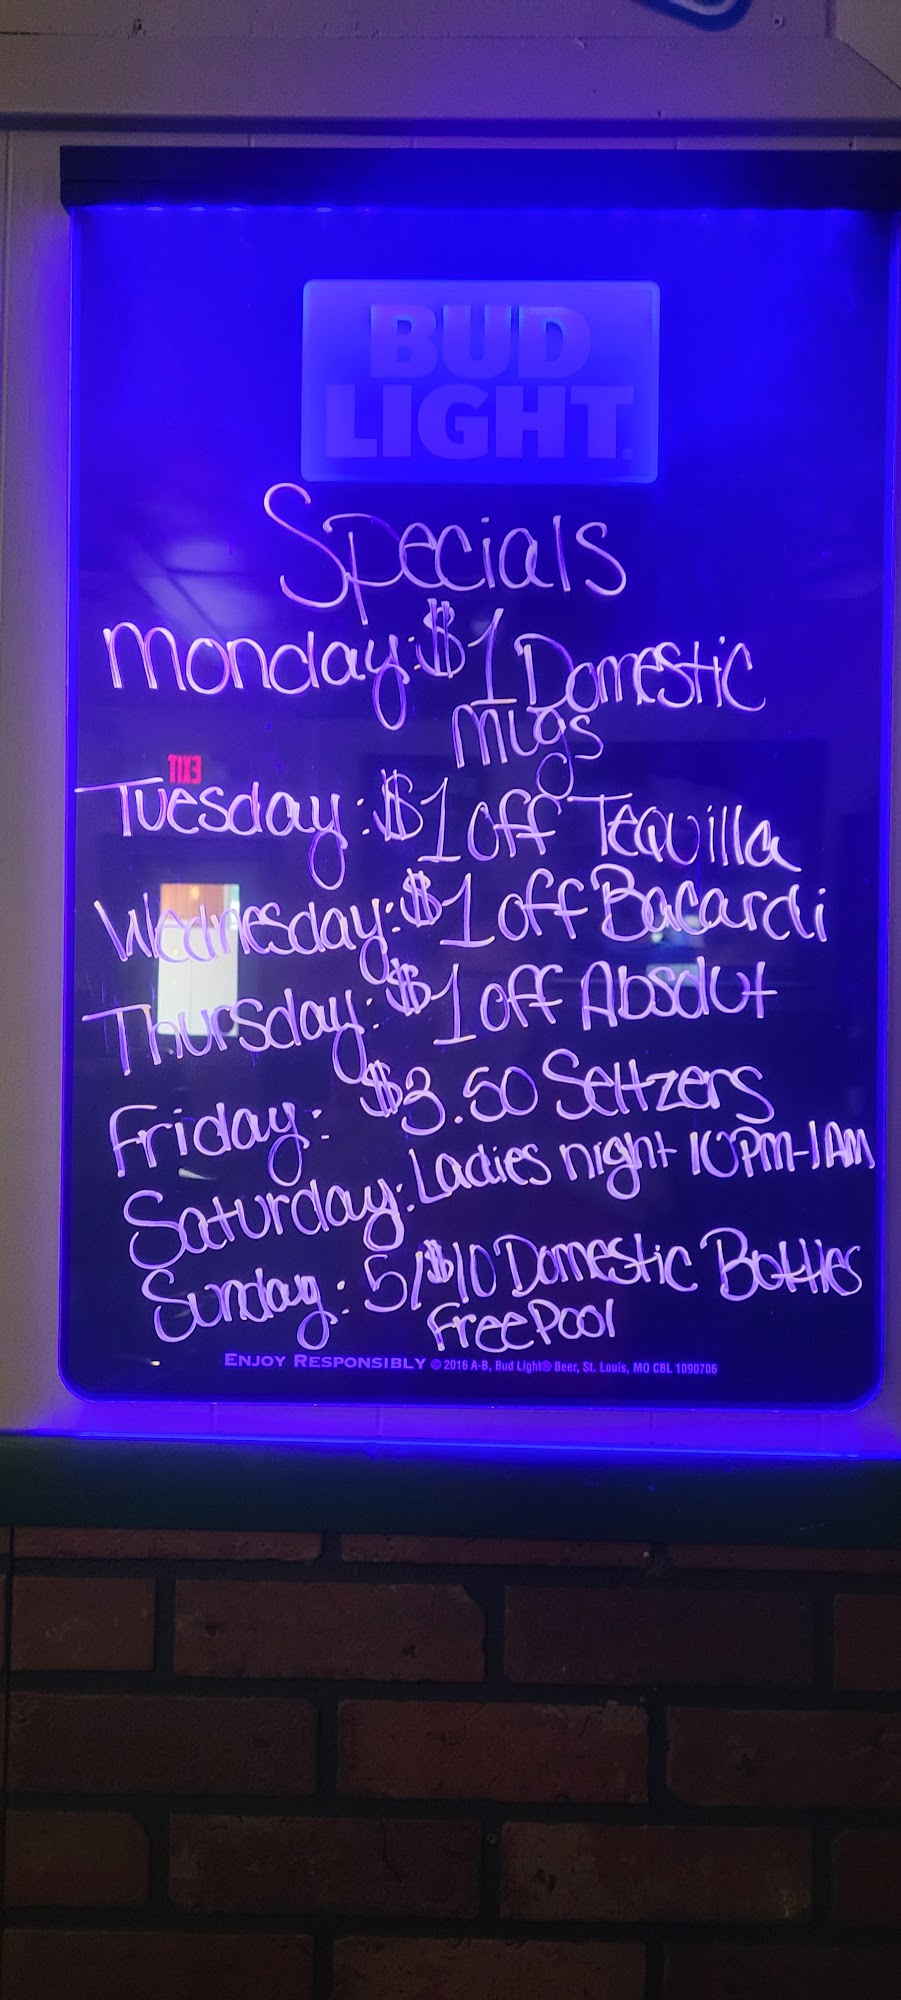 BUD
LIGHT
Specials
Monday: $1 Domestic
Mugs
EXIT
Tuesday: $1 off Tequilla
Wednesday: $1 off Bacardi
Thursday: $1 off Absolut
Friday: $3.50 Seltzers
Saturday: Ladies night 10PM-1AM
Sunday: 5/$10 Domestic Bottles
Free Pool
ENJOY RESPONSIBLY © 2016 A-B, Bud Light® Beer, St. Louis, MO CBL 1090706